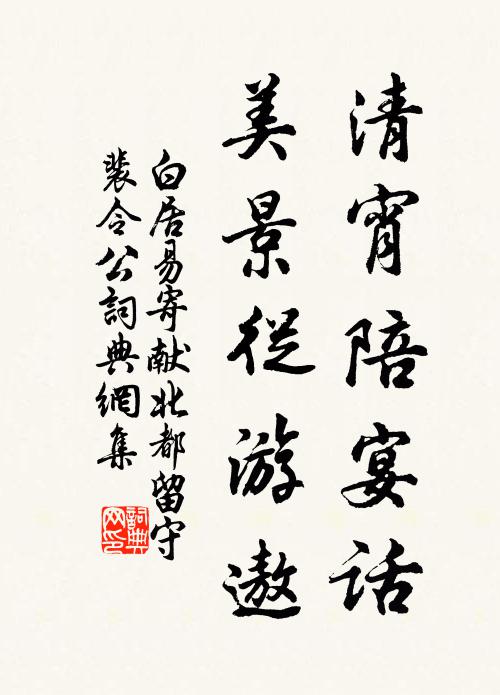 清宵陪宴話
美景從游遨
白居易寄献北都留守
裴令公詞典網集
詞典网印